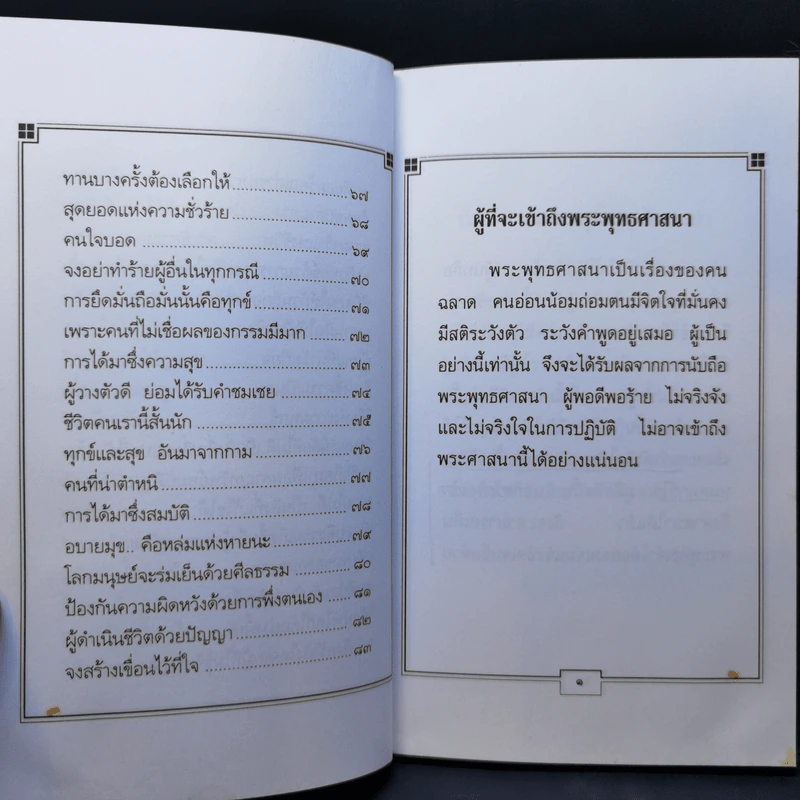 ทานบางครั้งต้องเลือกให้ ๖๗
สุดยอดแห่งความชั่วร้าย ๖๘
คนใจบอด ๖๙
จงอย่าทำร้ายผู้อื่นในทุกกรณี ๗๐
การยึดมั่นถือมั่นนั้นคือทุกข์ ๗๑
เพราะคนที่ไม่เชื่อผลของกรรมมีมาก ๗๒
การได้มาซึ่งความสุข ๗๓
ผู้วางตัวดี ย่อมได้รับคำชมเชย ๗๔
ชีวิตคนเรานี้สั้นนัก ๗๕
ทุกข์และสุข อันมาจากกาม ๗๖
คนที่น่าตำหนิ ๗๗
การได้มาซึ่งสมบัติ ๗๘
อบายมุข.. คือหล่มแห่งหายนะ ๗๙
โลกมนุษย์จะร่มเย็นด้วยศีลธรรม ๘๐
ป้องกันความผิดหวังด้วยการพึ่งตนเอง ๘๑
ผู้ดำเนินชีวิตด้วยปัญญา ๘๒
จงสร้างเขื่อนไว้ที่ใจ ๘๓
ผู้ที่จะเข้าถึงพระพุทธศาสนา
พระพุทธศาสนาเป็นเรื่องของคน
ฉลาด คนอ่อนน้อมถ่อมตนมีจิตใจที่มั่นคง
มีสติระวังตัว ระวังคำพูดอยู่เสมอ ผู้เป็น
อย่างนี้เท่านั้น จึงจะได้รับผลจากการนับถือ
พระพุทธศาสนา ผู้พอดีพอร้าย ไม่จริงจัง
และไม่จริงใจในการปฏิบัติ ไม่อาจเข้าถึง
พระศาสนานี้ได้อย่างแน่นอน
๑